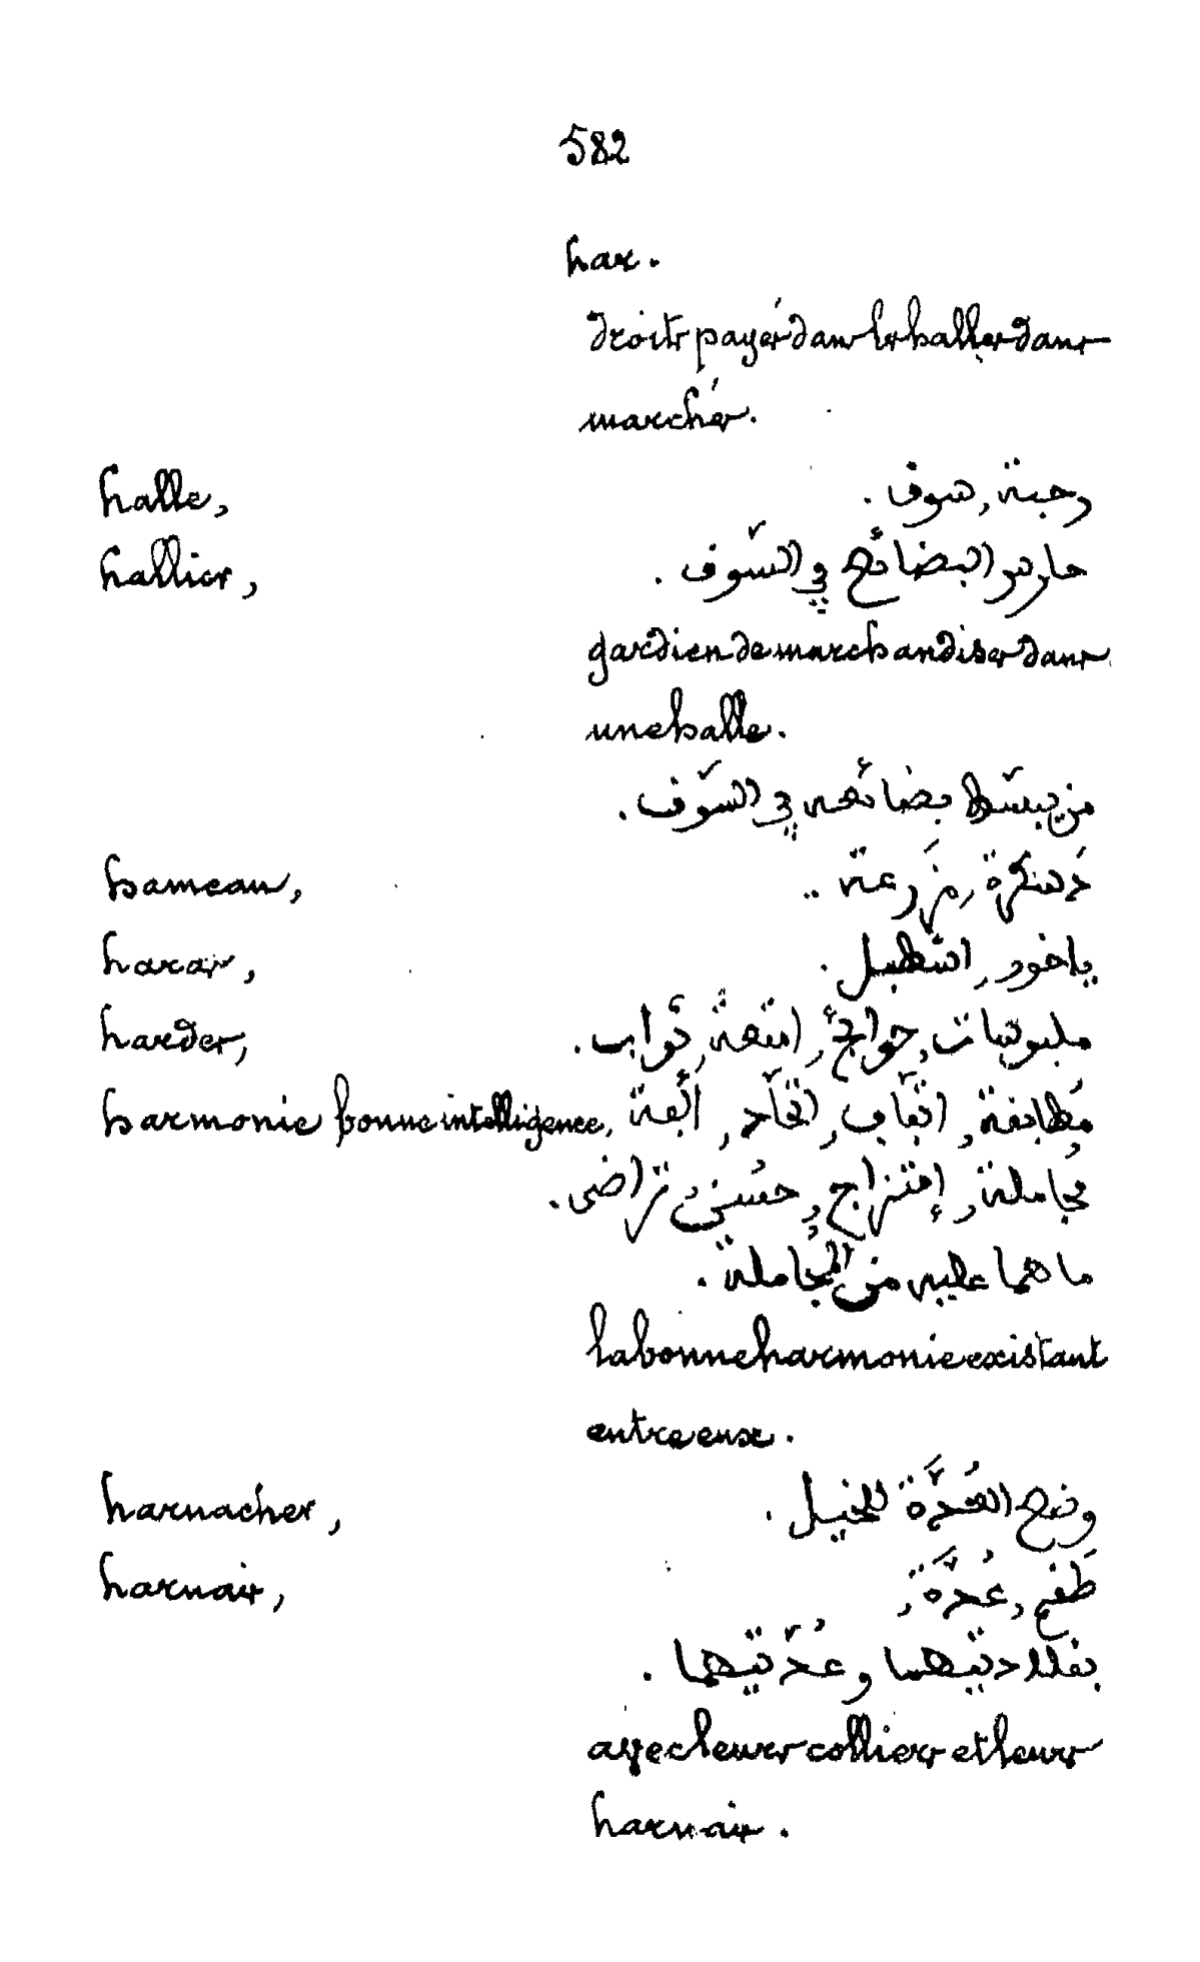 582
har.
droits payés dans les halles dans
marchés.
halle, رحبة, سوف.
hallier, حارس البضائع في السّوف.
gardien de marchandises dans
une halle.
من يبسّط بضائعه في السّوف.
hameau, دَسْكرة, مَزرعة..
haras, ياخور, اسّطبل.
hardes, ملبوسات, حوائج, امتعة, ثواب.
harmonie bonne intelligence, مُطابفة, اتّفاف, اتّحاد, ألّفة,
مُجاملة, إمتزاج, حسْنُ تراضى.
ما هما عليه من المُجاملة.
la bonne harmonie existant
entre eux.
harnacher, وضع العُدَّة للخيل.
harnais, طَفم, عُدَّة,
بفلادتيهما وعُدّتيهما.
avec leurs colliers et leurs
harnais.